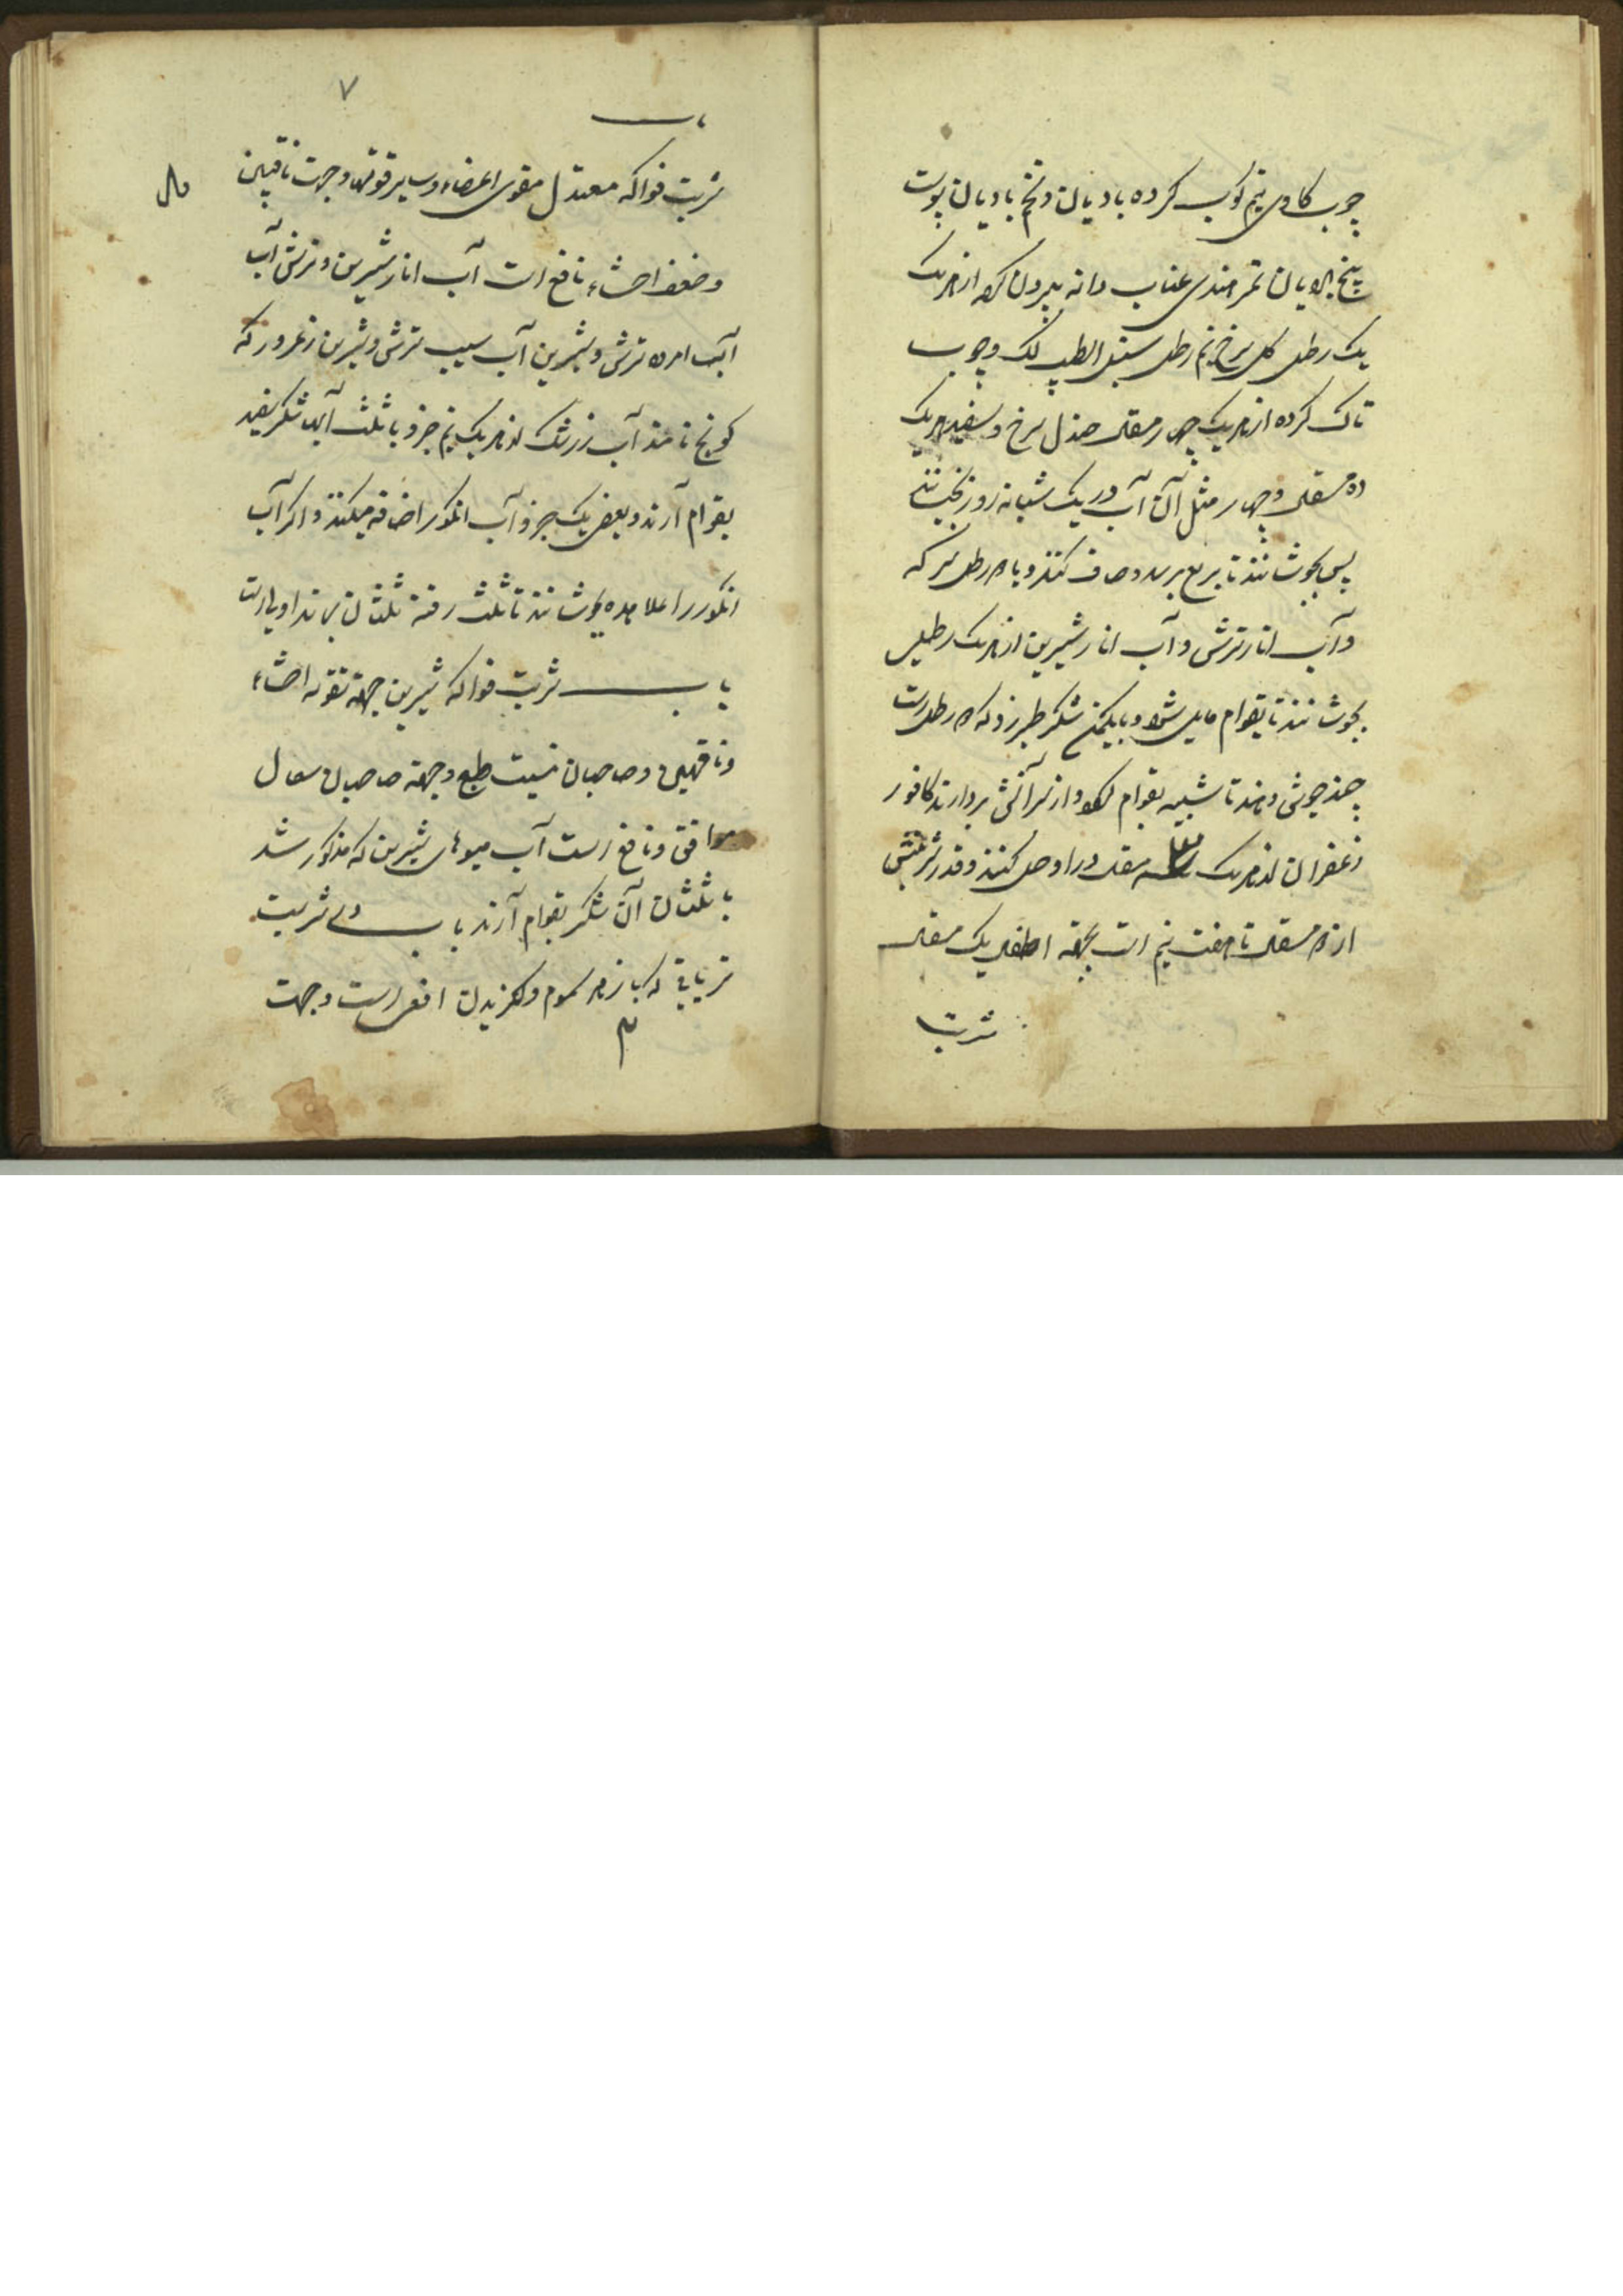 چوب کاوی نیم کوب کرده بادیان و تخم بادیان پوست
بیخ بادیان تمر هندی عناب دانه بیرون کرده از هر یک
یک رطل کل سرخ نیم رطل سنبل الطیب لک و چوب
تاک کرده از هر یک چهار مثقال صندل سرخ و سفید هر یک
ده مثقال و چهار مثل آن آب در یک شبانه روز بخیسانند
پس بجوشانند تا بربع برسد و صاف کنند و با رطل سرکه
و آب انار ترش و آب انار شیرین از هر یک رطلی
بجوشانند تا بقوام مایل شود و با یکمن شکر طبرزد که رطلست
چند جوشی دهند تا شبیه بقوام و از سر آتش بردارند کافور
زعفران از هر یک مثقال در او حل کنند و قدر شربتش
از مثقال تا هفت نیم است بجهة اطفال یک مثقال
شربت
۷
شربت فواکه معتدل مقوی اعضاء و سایر قوتها و جهت ناقهین
و ضعف احشاء نافع است آب انار شیرین و ترش آب
آب امرود ترش و شیرین آب سیب ترش و شیرین زعرور که
کونج نامند آب زرشک از هر یک نیم جزو با ثلث آن شکر سفید
بقوام آرند و بعضی یک جزو آب انکور اضافه میکنند و اکر آب
انکور را علاحده بجوشانند تا ثلث رفته ثلثان بماند اولی است
باب شربت فواکه شیرین جهة تقویه احشاء
و ناقهین و صاحبان طبع و جهة صاحبان سعال
موافق و نافع است آب میوهای شیرین که مذکور شد
با ثلثان آن شکر بقوام آرند باب شربت
تریاقی که با زهر سموم و کزیدن افعی است و جهت